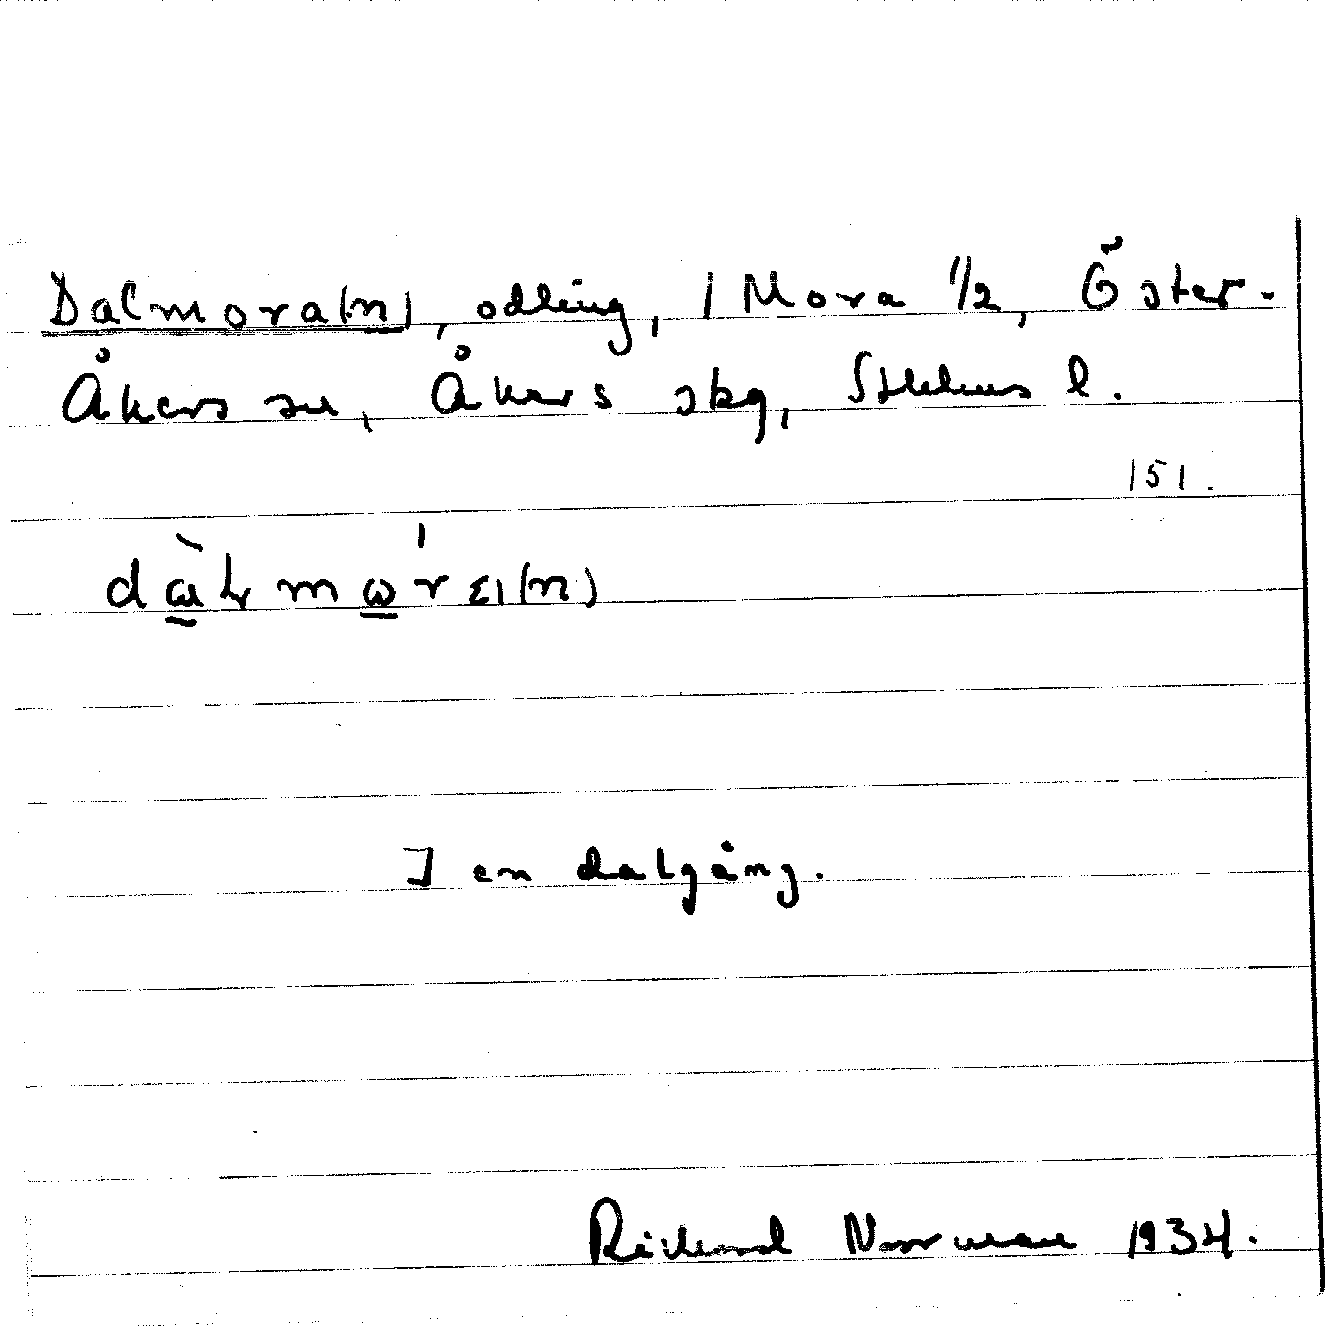 Dalmora(n), odling, 1 Mora 1/2, Öster-
Åkers sn, Åkers skg, Sthlms l.
151.
I en dalgång.
Richard Norrman 1934.